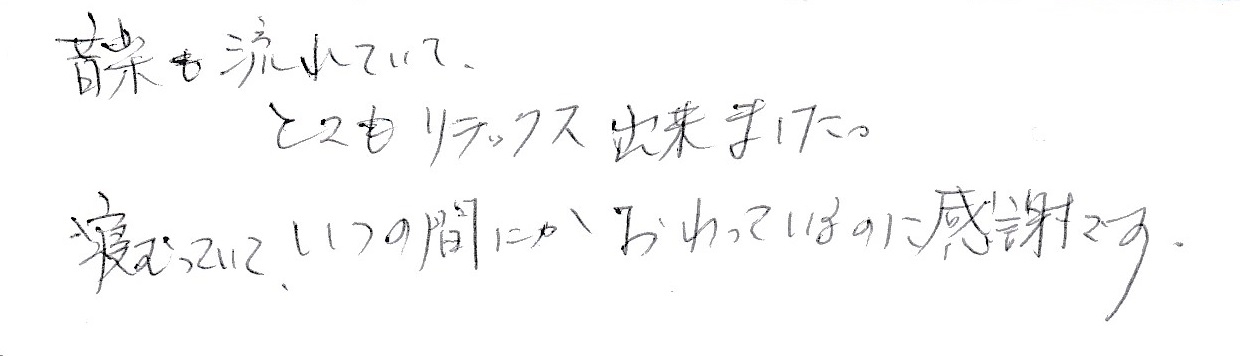 音楽も流れていて、
とてもリラックス出来ました。
寝むっていて、いつの間にかおわっているのに感謝です。